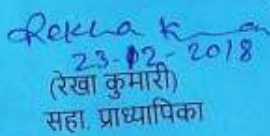 Rekha Kumari
23-02-2018
(रेखा कुमारी)
सहा. प्राध्यापिका